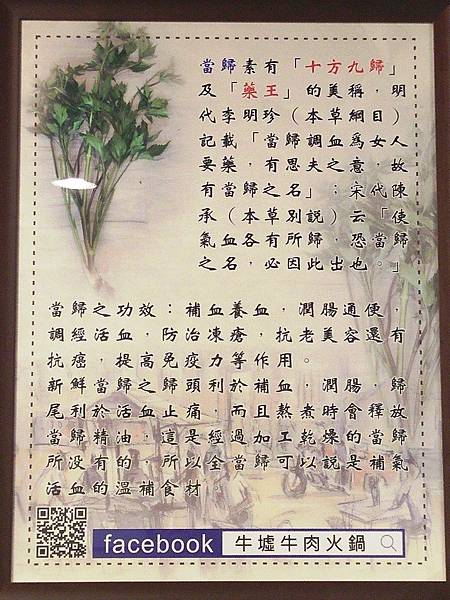 當歸素有「十方九歸」
及「藥王」的美稱，明
代李明珍（本草綱目）
記載「當歸調血為女人
要藥，有思夫之意，故
有當歸之名」；宋代陳
承（本草別說）云「使
氣血各有所歸，恐當歸
之名，必因此出也。」
當歸之功效：補血養血，潤腸通便，
調經活血，防治凍瘡，抗老美容還有
抗癌，提高免疫力等作用。
新鮮當歸之歸頭利於補血，潤腸，歸
尾利於活血止痛，而且熬煮時會釋放
當歸精油，這是經過加工乾燥的當歸
所没有的，所以全當歸可以說是補氣
活血的溫補食材
facebook 牛墟牛肉火鍋